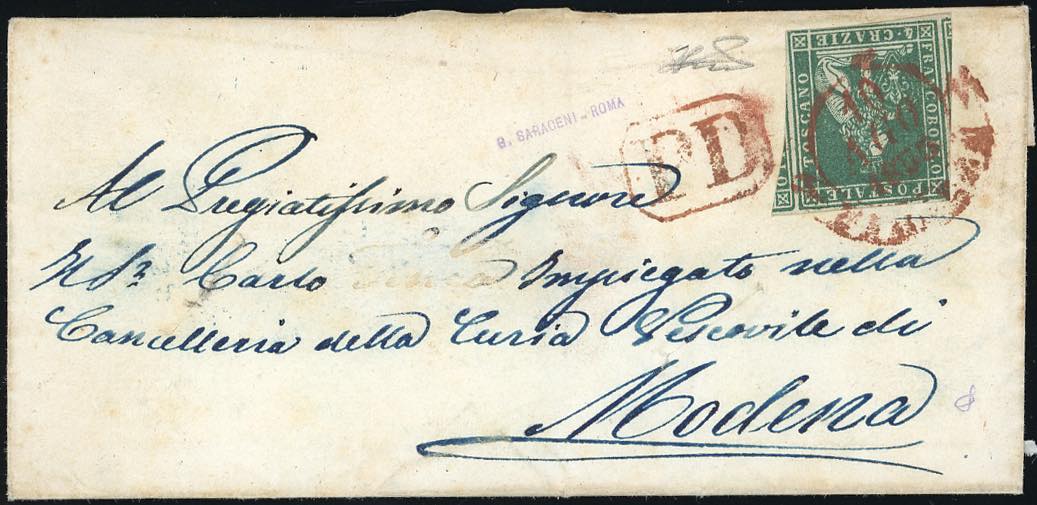 Al Pregiatissimo Signore
Il Sr. Carlo Impiegato nella
Cancelleria della Curia Vescovile di
Modena
PD
G. SARACENI - ROMA
FRANCOBOLLO
POSTALE
TOSCANO
4. CRAZIE
10
AGO